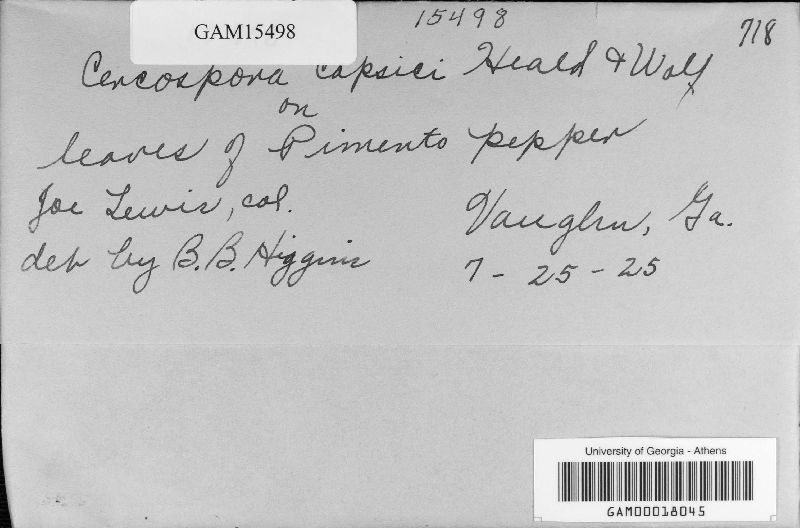 GAM15498
15498
718
Cercospora capsici Heald & Wolf
on
leaves of Pimento pepper
Joe Lewis, col.
Vaughn, Ga.
det by B.B. Higgins
7-25-25
University of Georgia - Athens
GAM00018045